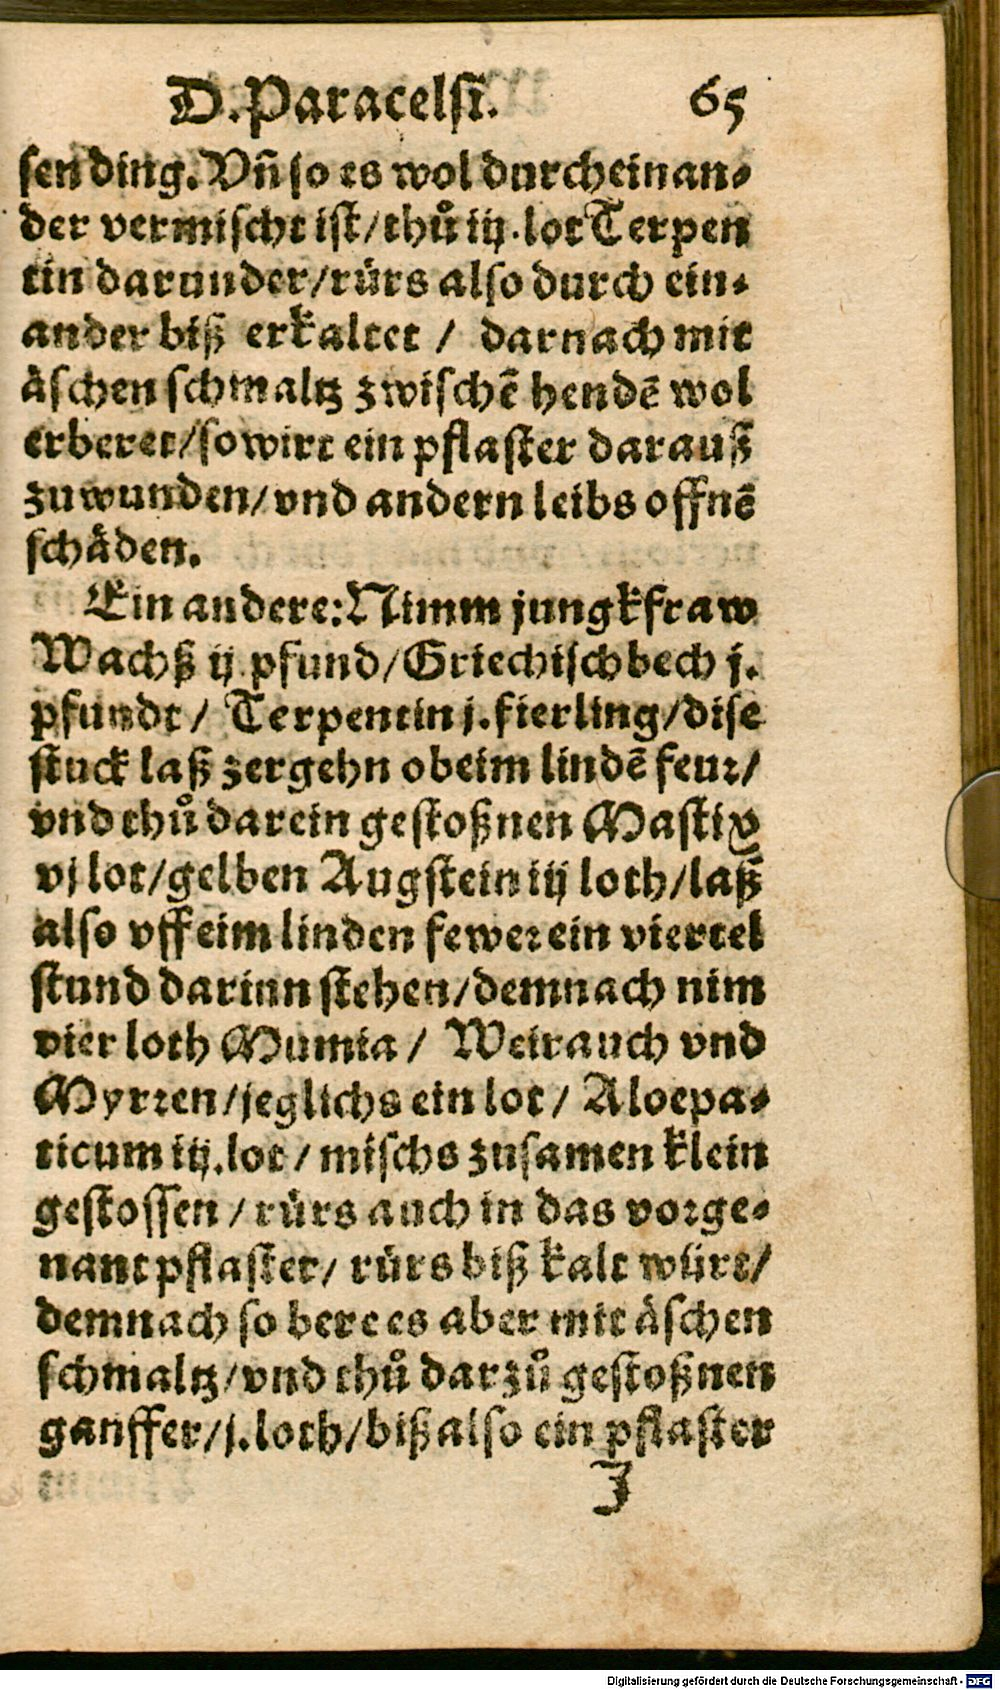 D. Paracelsi. 65
sen ding. Vñ so es wol durch einan-
der vermischt ist/ thů iij. lot Terpen
tin darunder/ rürs also durch ein-
ander biß erkaltet / darnach mit
äschen schmaltz zwischē hendē wol
erberet/ so wirt ein pflaster darauß
zu wunden/ vnd andern leibs offnē
schäden.
Ein andere: Nimm jungkfraw
Wachß ij pfund/ Griechisch bech j.
pfundt/ Terpentin j. fierling/ dise
stuck laß zergehn ob eim lindē feur/
vnd thů darein gestoßnen Mastix
vj lot/ gelben Augstein iij loth/ laß
also vff eim linden fewer ein viertel
stund darinn stehen/ demnach nim
vier loth Mumia / Weirauch vnd
Myrren/ jeglichs ein lot/ Aloepa-
ticum iij. lot / mischs zusamen klein
gestossen / rürs auch in das vorge-
nant pflaster/ rürs biß kalt würt/
demnach so bere es aber mit äschen
schmaltz/ vnd thů darzů gestoßnen
ganffer/ j. loth/ biß also ein pflaster
J
Digitalisierung gefördert durch die Deutsche Forschungsgemeinschaft - DFG